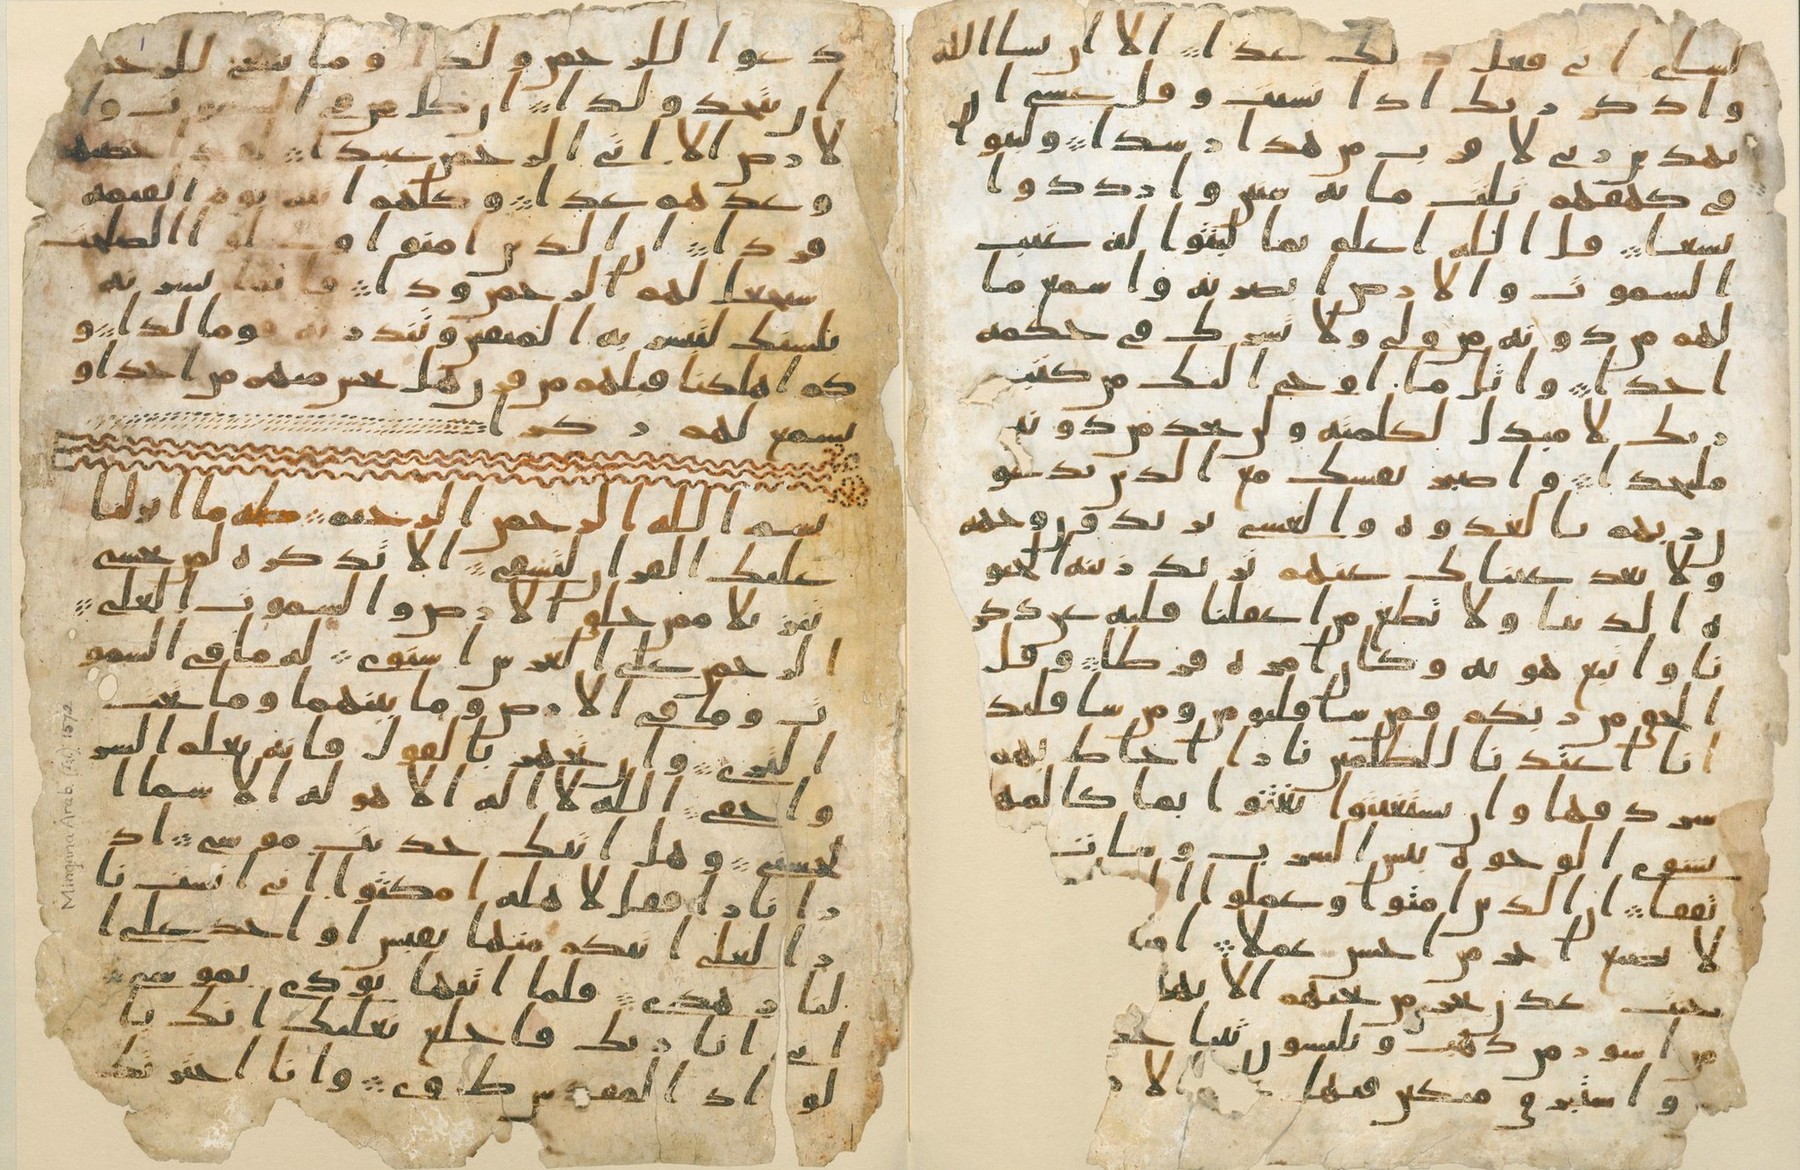 لشاي اني فعل ذلك غدا الا ان يشا الله
واذكر ربك اذا نسيت وقل عسى ان
يهدين ربي لاقرب من هذا رشدا ولبثوا
في كهفهم ثلث مايه سنين وازددوا
تسعا قل الله اعلم بما لبثوا له غيب
السموت والارض ابصر به واسمع ما
لهم من دونه من ولي ولا يشرك في حكمه
احدا واتل ما اوحي اليك من كتب
ربك لا مبدل لكلمته ولن تجد من دونه
ملتحدا واصبر نفسك مع الذين يدعو
ن ربهم بالغدوه والعشي يريدون وجهه
ولا تعد عيناك عنهم تريد زينه الحيو
ه الدنيا ولا تطع من اغفلنا قلبه عن ذكر
نا واتبع هويه وكان امره فرطا وقل
الحق من ربكم فمن شا فليومن ومن شا فليكفر
انا اعتدنا للظلمين نارا احاط بهم
سردقها وان يستغيثوا يغثوا بما كالمهل
يشوي الوجوه بيس الشرب وسات
تفقا ان الذين امنوا وعملوا ا
لا نضيع اجر من احسن عملا
جنت عدن تجري من تحتهم الانهر
من اسور من ذهب ويلبسون ثيابا خضر
واستبرق متكين فيها
دعوا للرحمن ولدا وما ينبغي للرحمن
ان يتخذ ولدا ان كل من في السموت وا
لارض الا اتي الرحمن عبدا لقد احصيهم
وعدهم عدا وكلهم اتيه يوم القيمه
فردا ان الذين امنوا وعملوا الصلحت
سيجعل لهم الرحمن ودا فانما يسرنه
بلسنك لتبشر به المتقين وتنذر به قوما لدا و
كم اهلكنا قبلهم من قرن هل تحس منهم من احد او
تسمع لهم ركزا
بسم الله الرحمن الرحيم طه ما انزلنا
عليك القران لتشقى الا تذكره لمن يخشى
تنزيلا ممن خلق الارض والسموت العلى
الرحمن على العرش استوى له ما في السمو
ت وما في الارض وما بينهما وما تحت
الثرى وان تجهر بالقول فانه يعلم السر
واخفى الله لا اله الا هو له الاسما ا
لحسنى وهل اتيك حديث موسى اذ
را نارا فقل لاهله امكثوا اني انست نا
را لعلي اتيكم منها بقبس او اجد على ا
لنار هدى فلما اتيها نودي يموسى
اني انا ربك فاخلع نعليك انك با
لواد المقدس طوى وانا اخترتك
Mingana Arab. (Isl) 1572